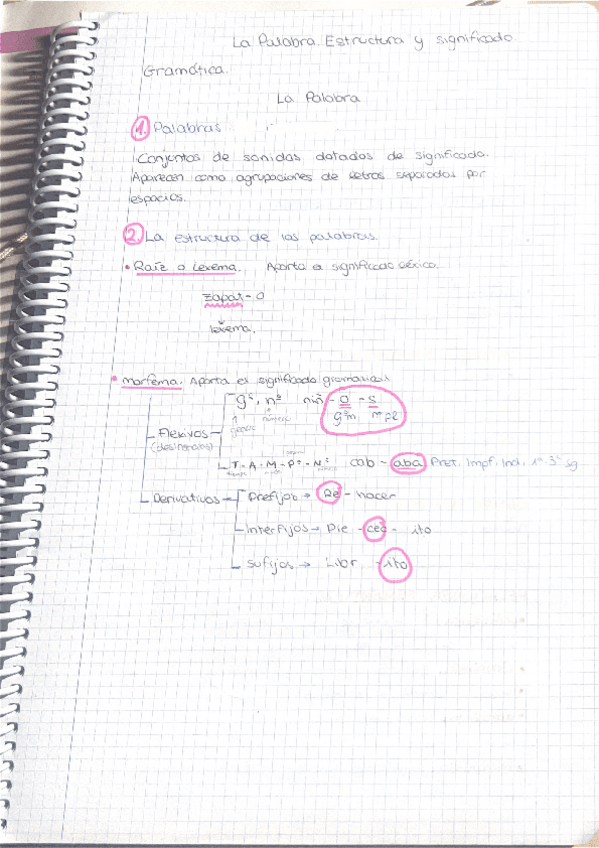 La Palabra. Estructura y significado.
Gramática.
La Palabra
1. Palabras
Conjuntos de sonidos dotados de significado.
Aparecen como agrupaciones de letras separadas por
espacios.
2. La estructura de las palabras.
• Raíz o Lexema. Aporta el significado léxico.
zapat-o
lexema.
• Morfema. Aporta el significado gramatical
Flexivos
(desinencias)
gº, nº niñ-o-s
género número gºm nºpl
T-A-M-Pº-Nº cab-aba Pret. Impf. Ind. 1ª 3ª sg
Derivativos
Prefijos → Re-nacer
Interfijos → Pie-cec-ito
Sufijos → Libr-ito